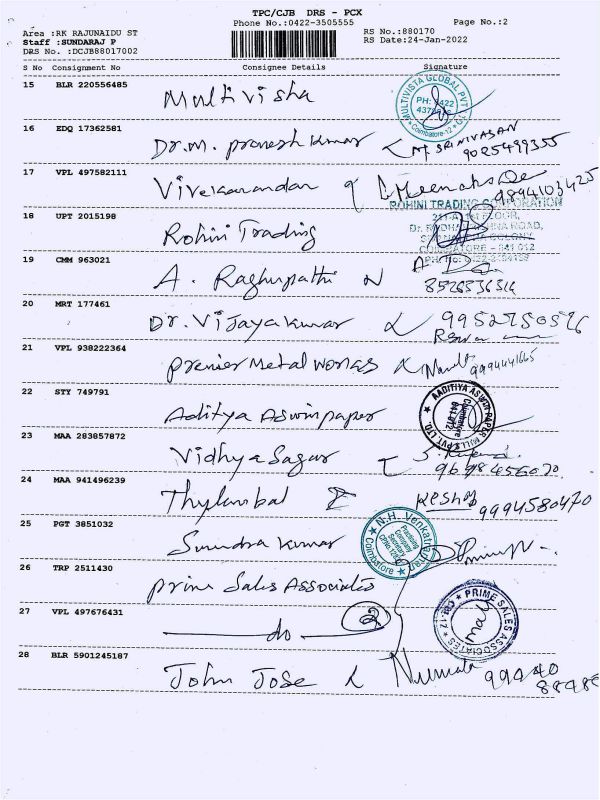 TPC/CJB DRS - PCX
Phone No.:0422-3505555
Page No.:2
Area :RK RAJUNAIDU ST
RS No.:880170
Staff :SUNDARAJ P
RS Date:24-Jan-2022
DRS No. :DCJB88017002
S No Consignment No Consignee Details Signature
15 BLR 220556485 Multi Visha
MULTIVISTA GLOBAL PVT LTD
PH: 0422
Coimbatore-12
16 EDQ 17362581 Dr. M. Pranesh Kumar
M SRINIVASAN
9025499355
17 VPL 497582111 Vivekanandan
9894103425
18 UPT 2015198 Rohini Trading
ROHINI TRADING CORPORATION
FLOOR,
ROAD,
COLONY
COIMBATORE - 641 012
19 CMM 963021 A. Raghupathi
20 MRT 177461 Dr. Vijayakumar
21 VPL 938222364 Premier Metal Works
22 STY 749791 Aditya Aswin paper
AADITIYA ASWIN PAPER MILLS PVT LTD.
Coimbatore
641 012
23 MAA 283857872 Vidhya Sagar
24 MAA 941496239 Thylambal
9994580470
25 PGT 3851032 Sundra Kumar
N.H. Venkatra
Practising
Company
Secretary
Coimbatore
26 TRP 2511430 Prime Sales Associates
27 VPL 497676431 do
PRIME SALES ASSOCIATES
CBE-12
28 BLR 5901245187 John Jose
Nirmala